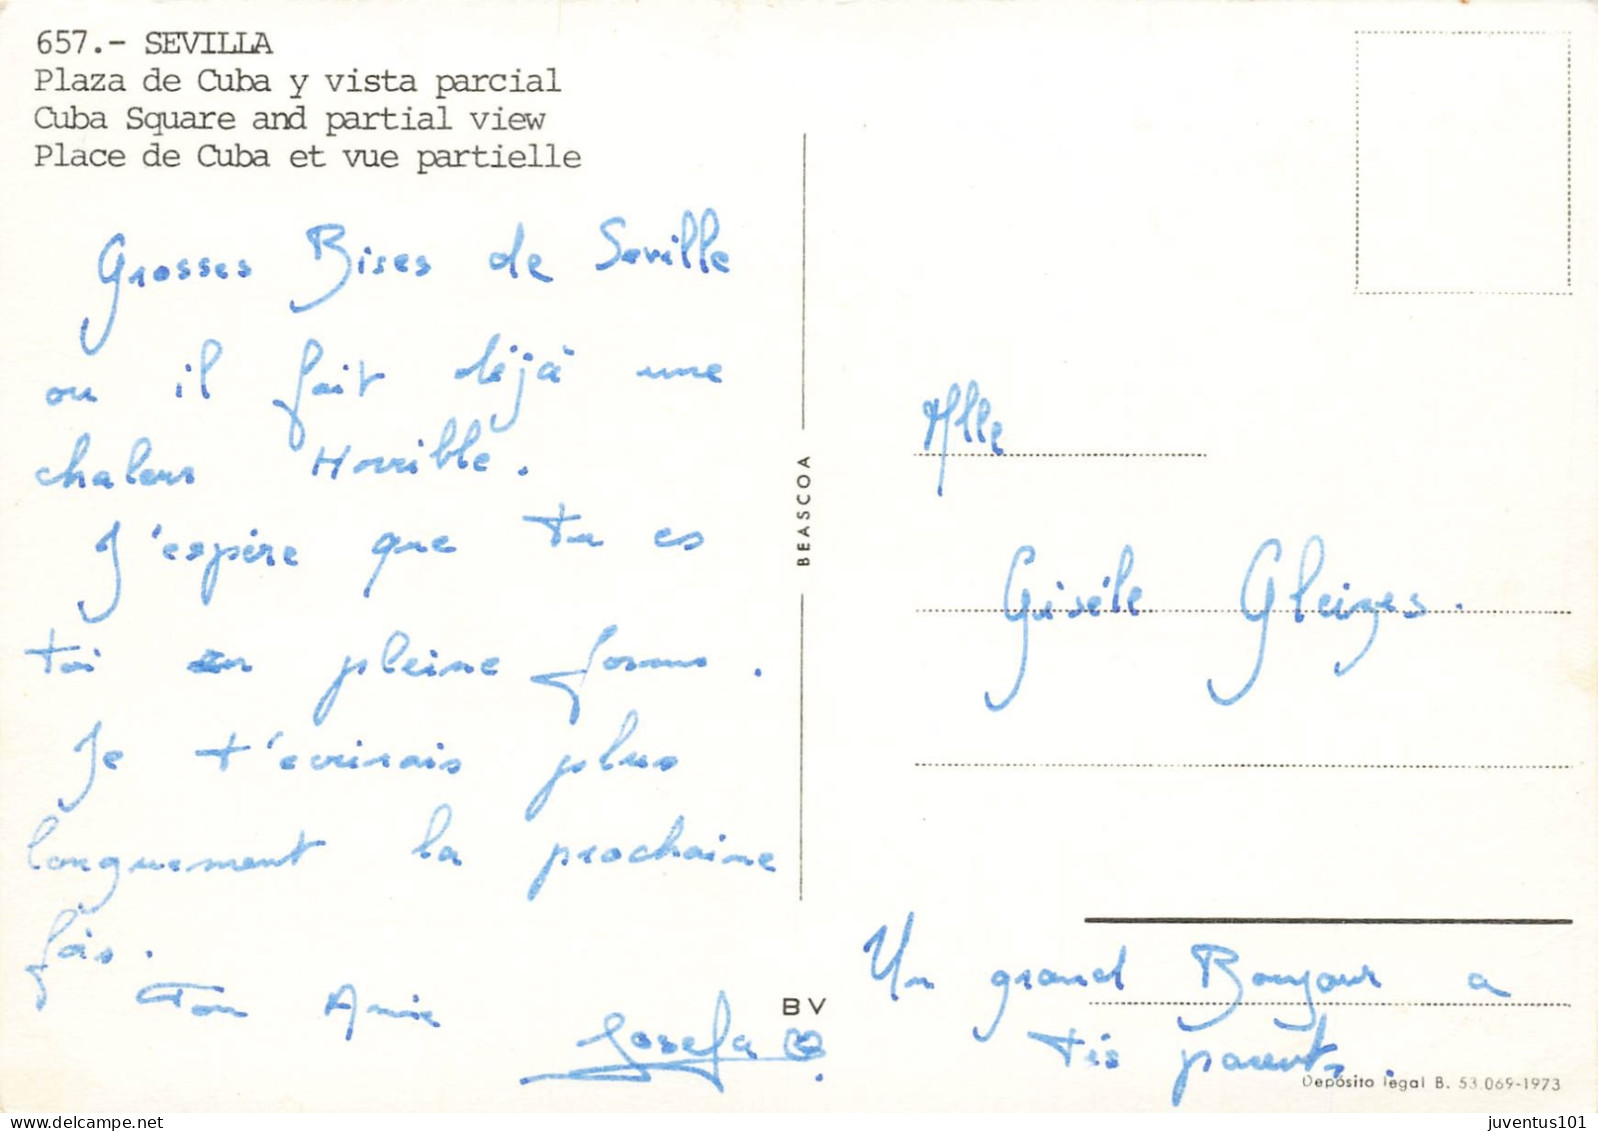 657.- SEVILLA
Plaza de Cuba y vista parcial
Cuba Square and partial view
Place de Cuba et vue partielle
Grosses Bises de Seville
ou il fait déjà une
chaleur Horrible.
J'espère que tu es
toi en pleine forme.
Je t'écrirais plus
longuement la prochaine
fois.
Ton Amie
Josefa
BEASCOA
BV
Mlle
Gisèle Gleizes.
Un grand Bonjour a
tes parents.
Depósito legal B. 53.069-1973
juventus101